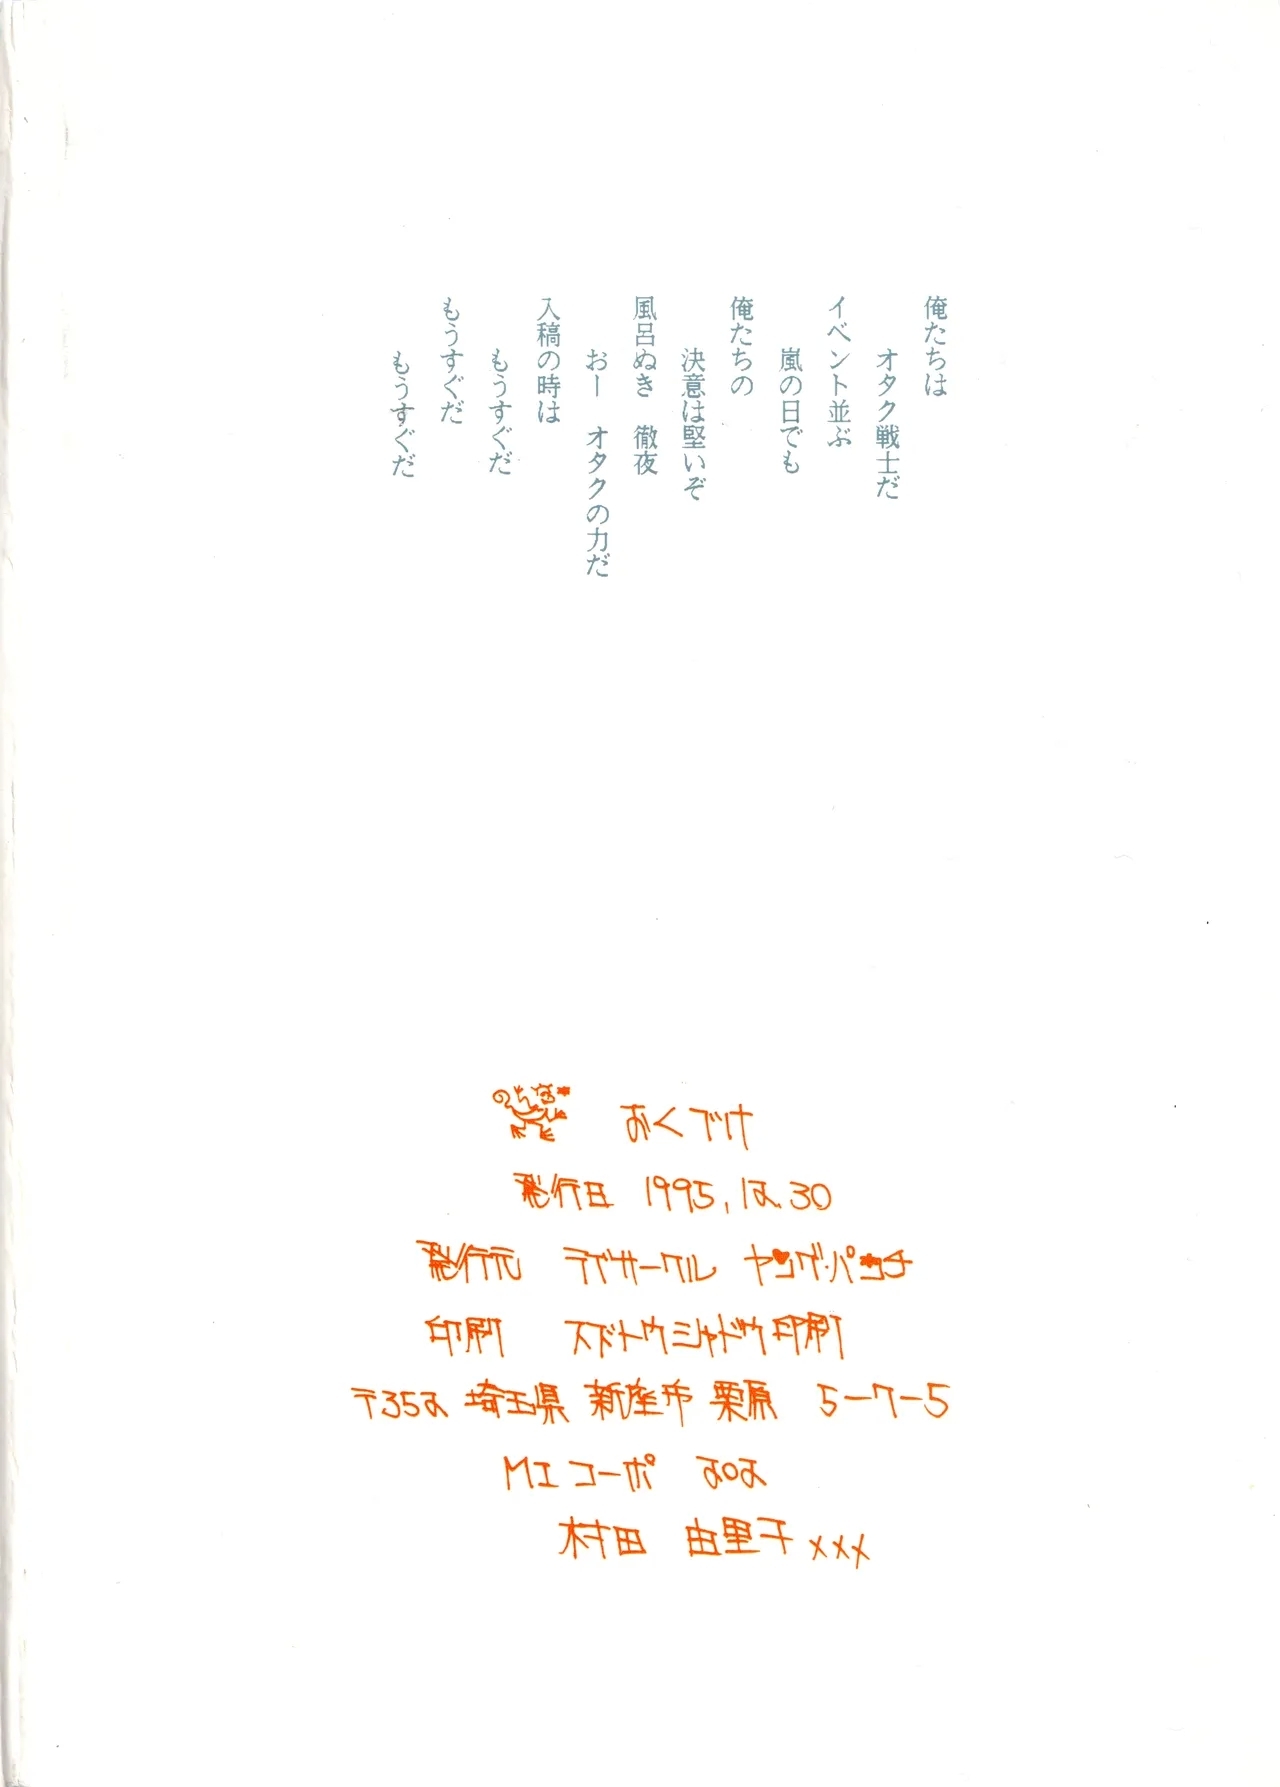 俺たちは
オタク戦士だ
イベント並ぶ
嵐の日でも
俺たちの
決意は堅いぞ
風呂ぬき　徹夜
おー　オタクの力だ
入稿の時は
もうすぐだ
もうすぐだ
もうすぐだ
おくづけ
発行日 1995.12.30
発行元 ラブサークル ヤングパンチ
印刷 印刷
〒352 埼玉県 新座市 栗原 5-7-5
MIコーポ 202
村田 由里子xxx